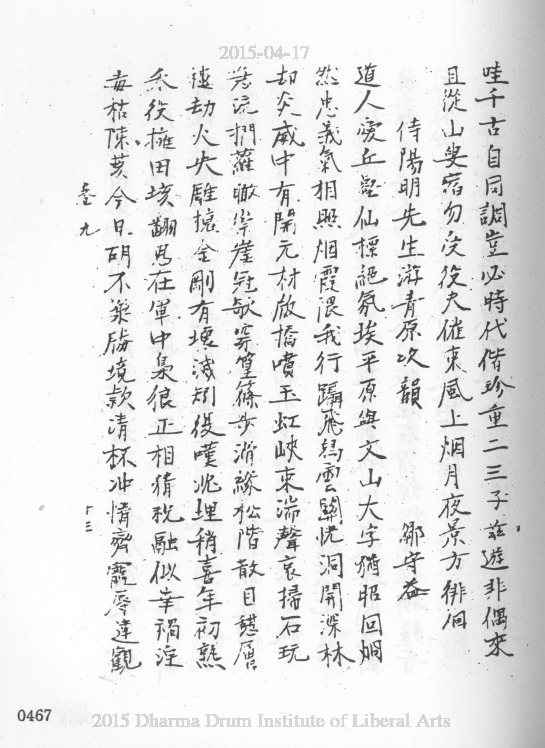 2015-04-17
哇千古自同調豈必時代偕珍重二三子茲遊非偶來
且從山叟宿勿役夫催東風上烟月夜景方徘徊
侍陽明先生游青原次韻 鄒守益
道人愛丘壑仙標絕氛埃平原與文山大字猶昭回炯
然忠義氣相照烟霞隈我行躡飛舄雲關恍洞開深林
却炎威中有開元材放橋噴玉虹峽束湍聲哀掃石玩
急流捫蘿瞰崇崖冠欹穿篁篠步滑緣松階散目諶層
劫火失雕搥金剛有壞滅刻復嘆沈埋稍喜年初熟
永役擁田垓翻思在軍中梟狼正相猜祝融似幸禍淫
毒枯陳荄今日胡不樂勝境款清杯冲情齊寵辱達觀
卷九
十三
0467
2015 Dharma Drum Institute of Liberal Arts